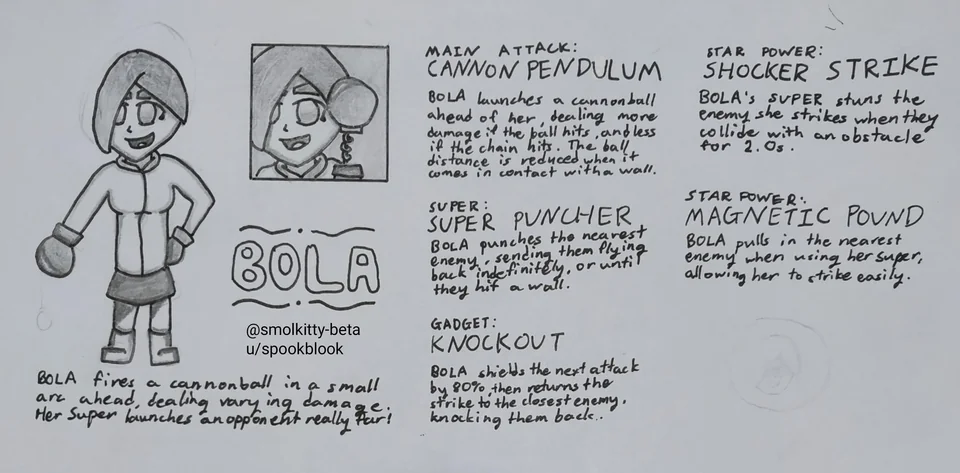 BOLA
@smolkitty-beta
u/spookblook
BOLA fires a cannonball in a small
arc ahead, dealing varying damage.
Her Super launches an opponent really far!
MAIN ATTACK:
CANNON PENDULUM
BOLA launches a cannonball
ahead of her, dealing more
damage if the ball hits, and less
if the chain hits. The ball
distance is reduced when it
comes in contact with a wall.
SUPER:
SUPER PUNCHER
BOLA punches the nearest
enemy, sending them flying
back indefinitely, or until
they hit a wall.
GADGET:
KNOCKOUT
BOLA shields the next attack
by 80%, then returns the
strike to the closest enemy,
knocking them back.
STAR POWER:
SHOCKER STRIKE
BOLA's SUPER stuns the
enemy she strikes when they
collide with an obstacle
for 2.0s.
STAR POWER:
MAGNETIC POUND
BOLA pulls in the nearest
enemy when using her super,
allowing her to strike easily.